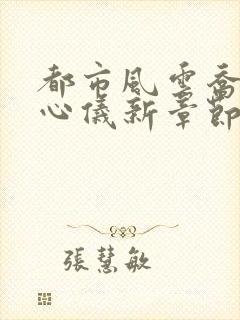 都市風雲喬
心儀新章節
張慧敏